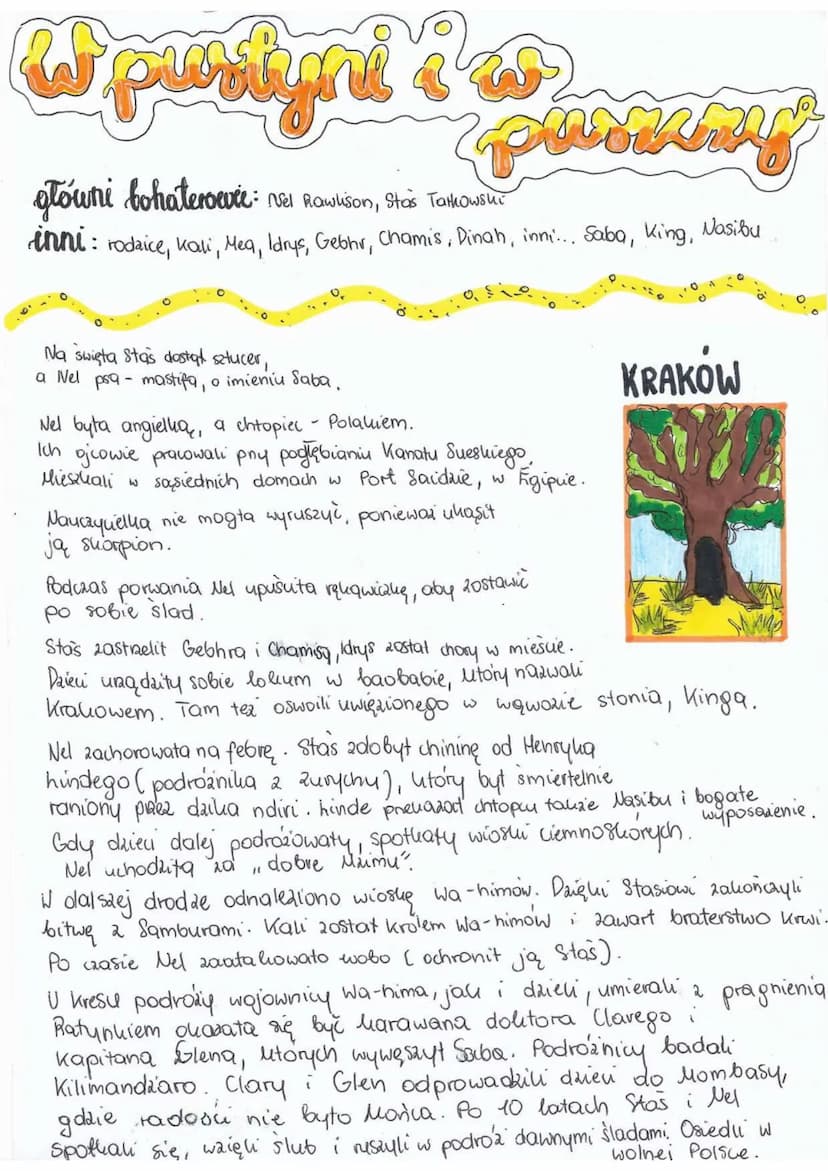 W pustyni i w
puszczy
główni bohaterowie: Nel Rawlison, Staś Tarkowski
inni: rodzice, Kali, Mea, Idrys, Gebhr, Chamis, Dinah, inni... Saba, King, Nasibu
Na święta Staś dostał sztucer,
a Nel psa - mastifa, o imieniu Saba.
KRAKÓW
Nel była angielką, a chłopiec - Polakiem.
Ich ojcowie pracowali przy pogłębianiu Kanału Sueskiego.
Mieszkali w sąsiednich domach w Port Saidzie, w Egipcie.
Nauczycielka nie mogła wyruszyć, ponieważ ukąsił
ją skorpion.
Podczas porwania Nel upuściła rękawiczkę, aby zostawić
po sobie ślad.
Staś zastrzelił Gebhra i Chamisa, Idrys został chory w mieście.
Dzieci urządziły sobie lokum w baobabie, który nazwali
Krakowem. Tam też oswoili uwięzionego w wąwozie słonia, Kinga.
Nel zachorowała na febrę. Staś zdobył chininę od Henryka
hindego (podróżnika z Zurychu), który był śmiertelnie
raniony przez dzika ndiri. hinde przekazał chłopcu także Nasibu i bogate
wyposażenie.
Gdy dzieci dalej podróżowały, spotkały wioski ciemnoskórych.
Nel uchodziła za „dobre Mzimu".
W dalszej drodze odnaleziono wioskę Wa-himów. Dzięki Stasiowi zakończyli
bitwę z Samburami. Kali został królem Wa-himów i zawarł braterstwo krwi.
Po czasie Nel zaatakowało wobo (ochronił ją Staś).
U kresu podróży wojownicy Wa-hima, jak i dzieci, umierali z pragnienia
Ratunkiem okazała się być karawana doktora Clarego i
kapitana Glena, których wywęszył Saba. Podróżnicy badali
Kilimandżaro. Clary i Glen odprowadzili dzieci do Mombasy,
gdzie radości nie było końca. Po 10 latach Staś i Nel
spotkali się, wzięli ślub i ruszyli w podróż dawnymi śladami. Osiedli w
wolnej Polsce.